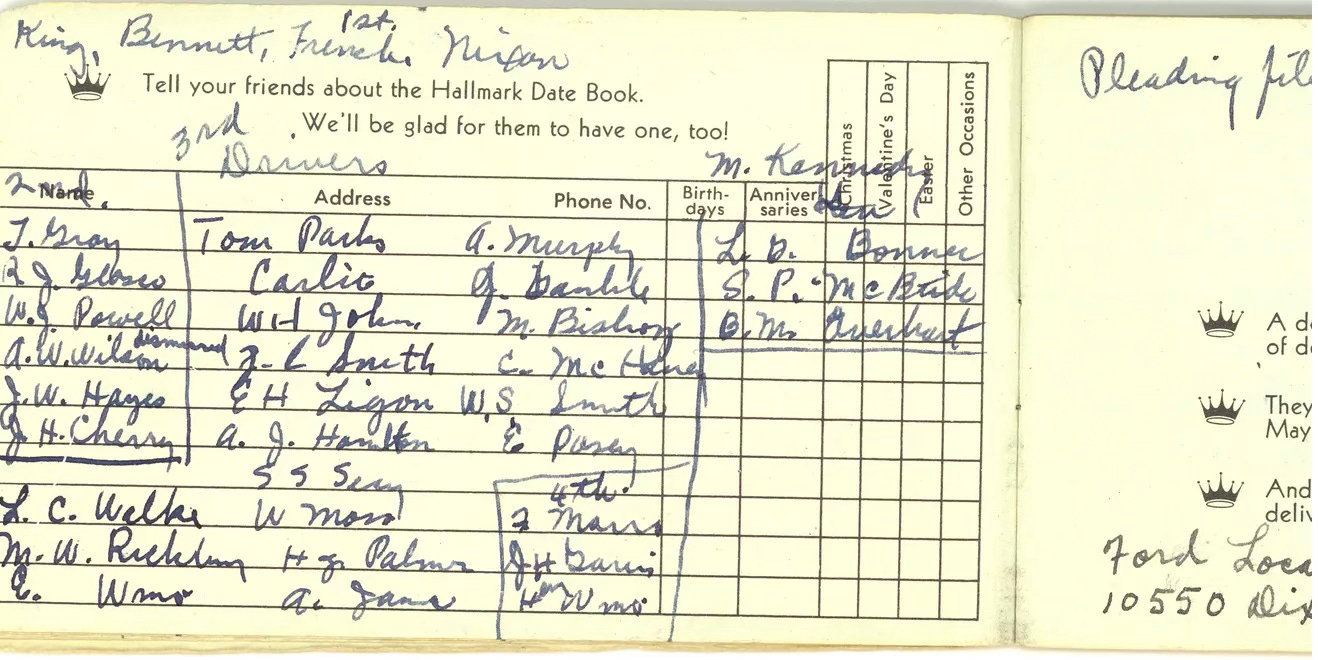 1st.
King, Bennett, French. Nixon
Tell your friends about the Hallmark Date Book.
We'll be glad for them to have one, too!
3rd
Drivers
M. Kennedy
2nd.
Name Address Phone No. Birth-days Anniver-saries Christmas Valentine's Day Easter Other Occasions
T. Gray Tom Parks A. Murphy L. D. Bonner
R. J. Carlie J. Gamble S. P. McBride
W. J. Powell W H John. M. Bishop B. M. Overhart
A. W. Wilson dismissed J. L Smith C. Mc
J. W. Hayes E H Ligon W. S. Smith
J. H. Cherry A. J. Hamilton E Posey
S S Seay
4th.
L. C. Welke W Moss
M. W. H J. Palmer J H Davis
E. Wms A. H Wms
Pleading
A d
of d
They
May
And
deliv
Ford Loca
10550 Dix